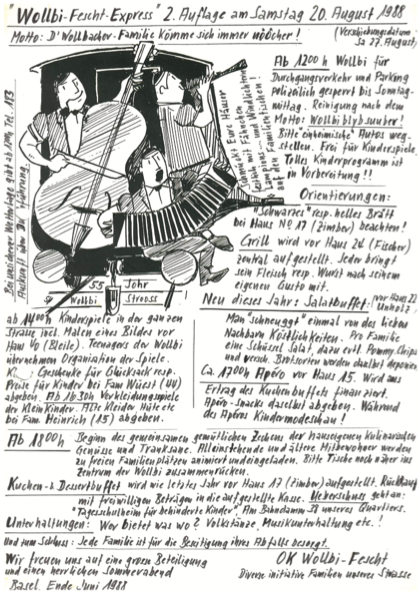 "Wollbi-Fescht-Express" 2. Auflage am Samstag 20. August 1988
Motto: D'Wollbacher-Familie kömme sich immer nööcher!
(Verschiebungsdatum:
Sa 27. August)
Ab 1200 h Wollbi für
Durchgangsverkehr und Parking
Polizeilich gesperrt bis Sonntag-
mittag. Reinigung nach dem
Motto: Wollbi blyb suuber!
Bitte "einheimische" Autos weg-
stellen. Frei für Kinderspiele.
Tolles Kinderprogramm ist
in Vorbereitung!!
Schmückt Eure Häuser
festlich mit Fähnchen
Lampions
an den Familientischen!
Bei unsicherer Wetterlage gibt ab Tel. 183
Auskunft über Durchführung.
55 Johr
Wollbi Strooss
Orientierungen:
"Schwarzes" resp. helles Brätt
bei Haus No 17 (Zimber) beachten!
Grill wird vor Haus 24 (Fischer)
zentral aufgestellt. Jeder bringt
sein Fleisch resp. Wurst nach seinem
eigenen Gusto mit.
Neu dieses Jahr: Salatbuffet: (vor Haus 22
Umholz)
Man "schneuggt" einmal von des lieben
Nachbarn Köstlichkeiten. Pro Familie
eine Schüssel Salat, dazu evtl. Pommy Chips
und versch. Brotsorten werden daselbst deponiert
Ca. 1700 h Apéro vor Haus 15. Wird aus
Ertrag des Kuchenbuffets finanziert.
Apéro-Snacks daselbst abgeben. Während
des Apéros Kindermodeschau!
ab 1400 h Kinderspiele in der ganzen
Strasse incl. Malen eines Bildes vor
Haus 40 (Bleile). Teenagers der Wollbi
übernehmen Organisation der Spiele.
Geschenke für Glücksack resp.
Preise für Kinder bei Fam Wüest (44)
abgeben. Ab 1630 h Verkleidungsspiele
der Kleinkinder. Alte Kleider Hüte etc
bei Fam. Heinrich (15) abgeben.
Ab 1800 h Beginn des gemeinsamen gemütlichen Zechens der hauseigenen kulinarischen
Genüsse und Tranksame. Alleinstehende und ältere Mitbewohner werden
zu freien Familienplätzen animiert und eingeladen. Bitte Tische noch näher ins
Zentrum der Wollbi zusammenrücken.
Kuchen- & Dessertbuffet wird wie letztes Jahr vor Haus 17 (Zimber) aufgestellt. Rückkauf
mit freiwilligen Beträgen in die aufgestellte Kasse. Ueberschuss geht an:
"Tagesschulheim für behinderte Kinder". Am Bahndamm 38 unseres Quartiers.
Unterhaltungen: Wer bietet was wo? Volkstänze, Musikunterhaltung etc.!
Und zum Schluss: Jede Familie ist für die Beseitigung ihres Abfalls besorgt.
Wir freuen uns auf eine grosse Beteiligung
und einen herrlichen Sommerabend
Basel. Ende Juni 1988
OK Wollbi-Fescht
Diverse initiative Familien unseres Strasse